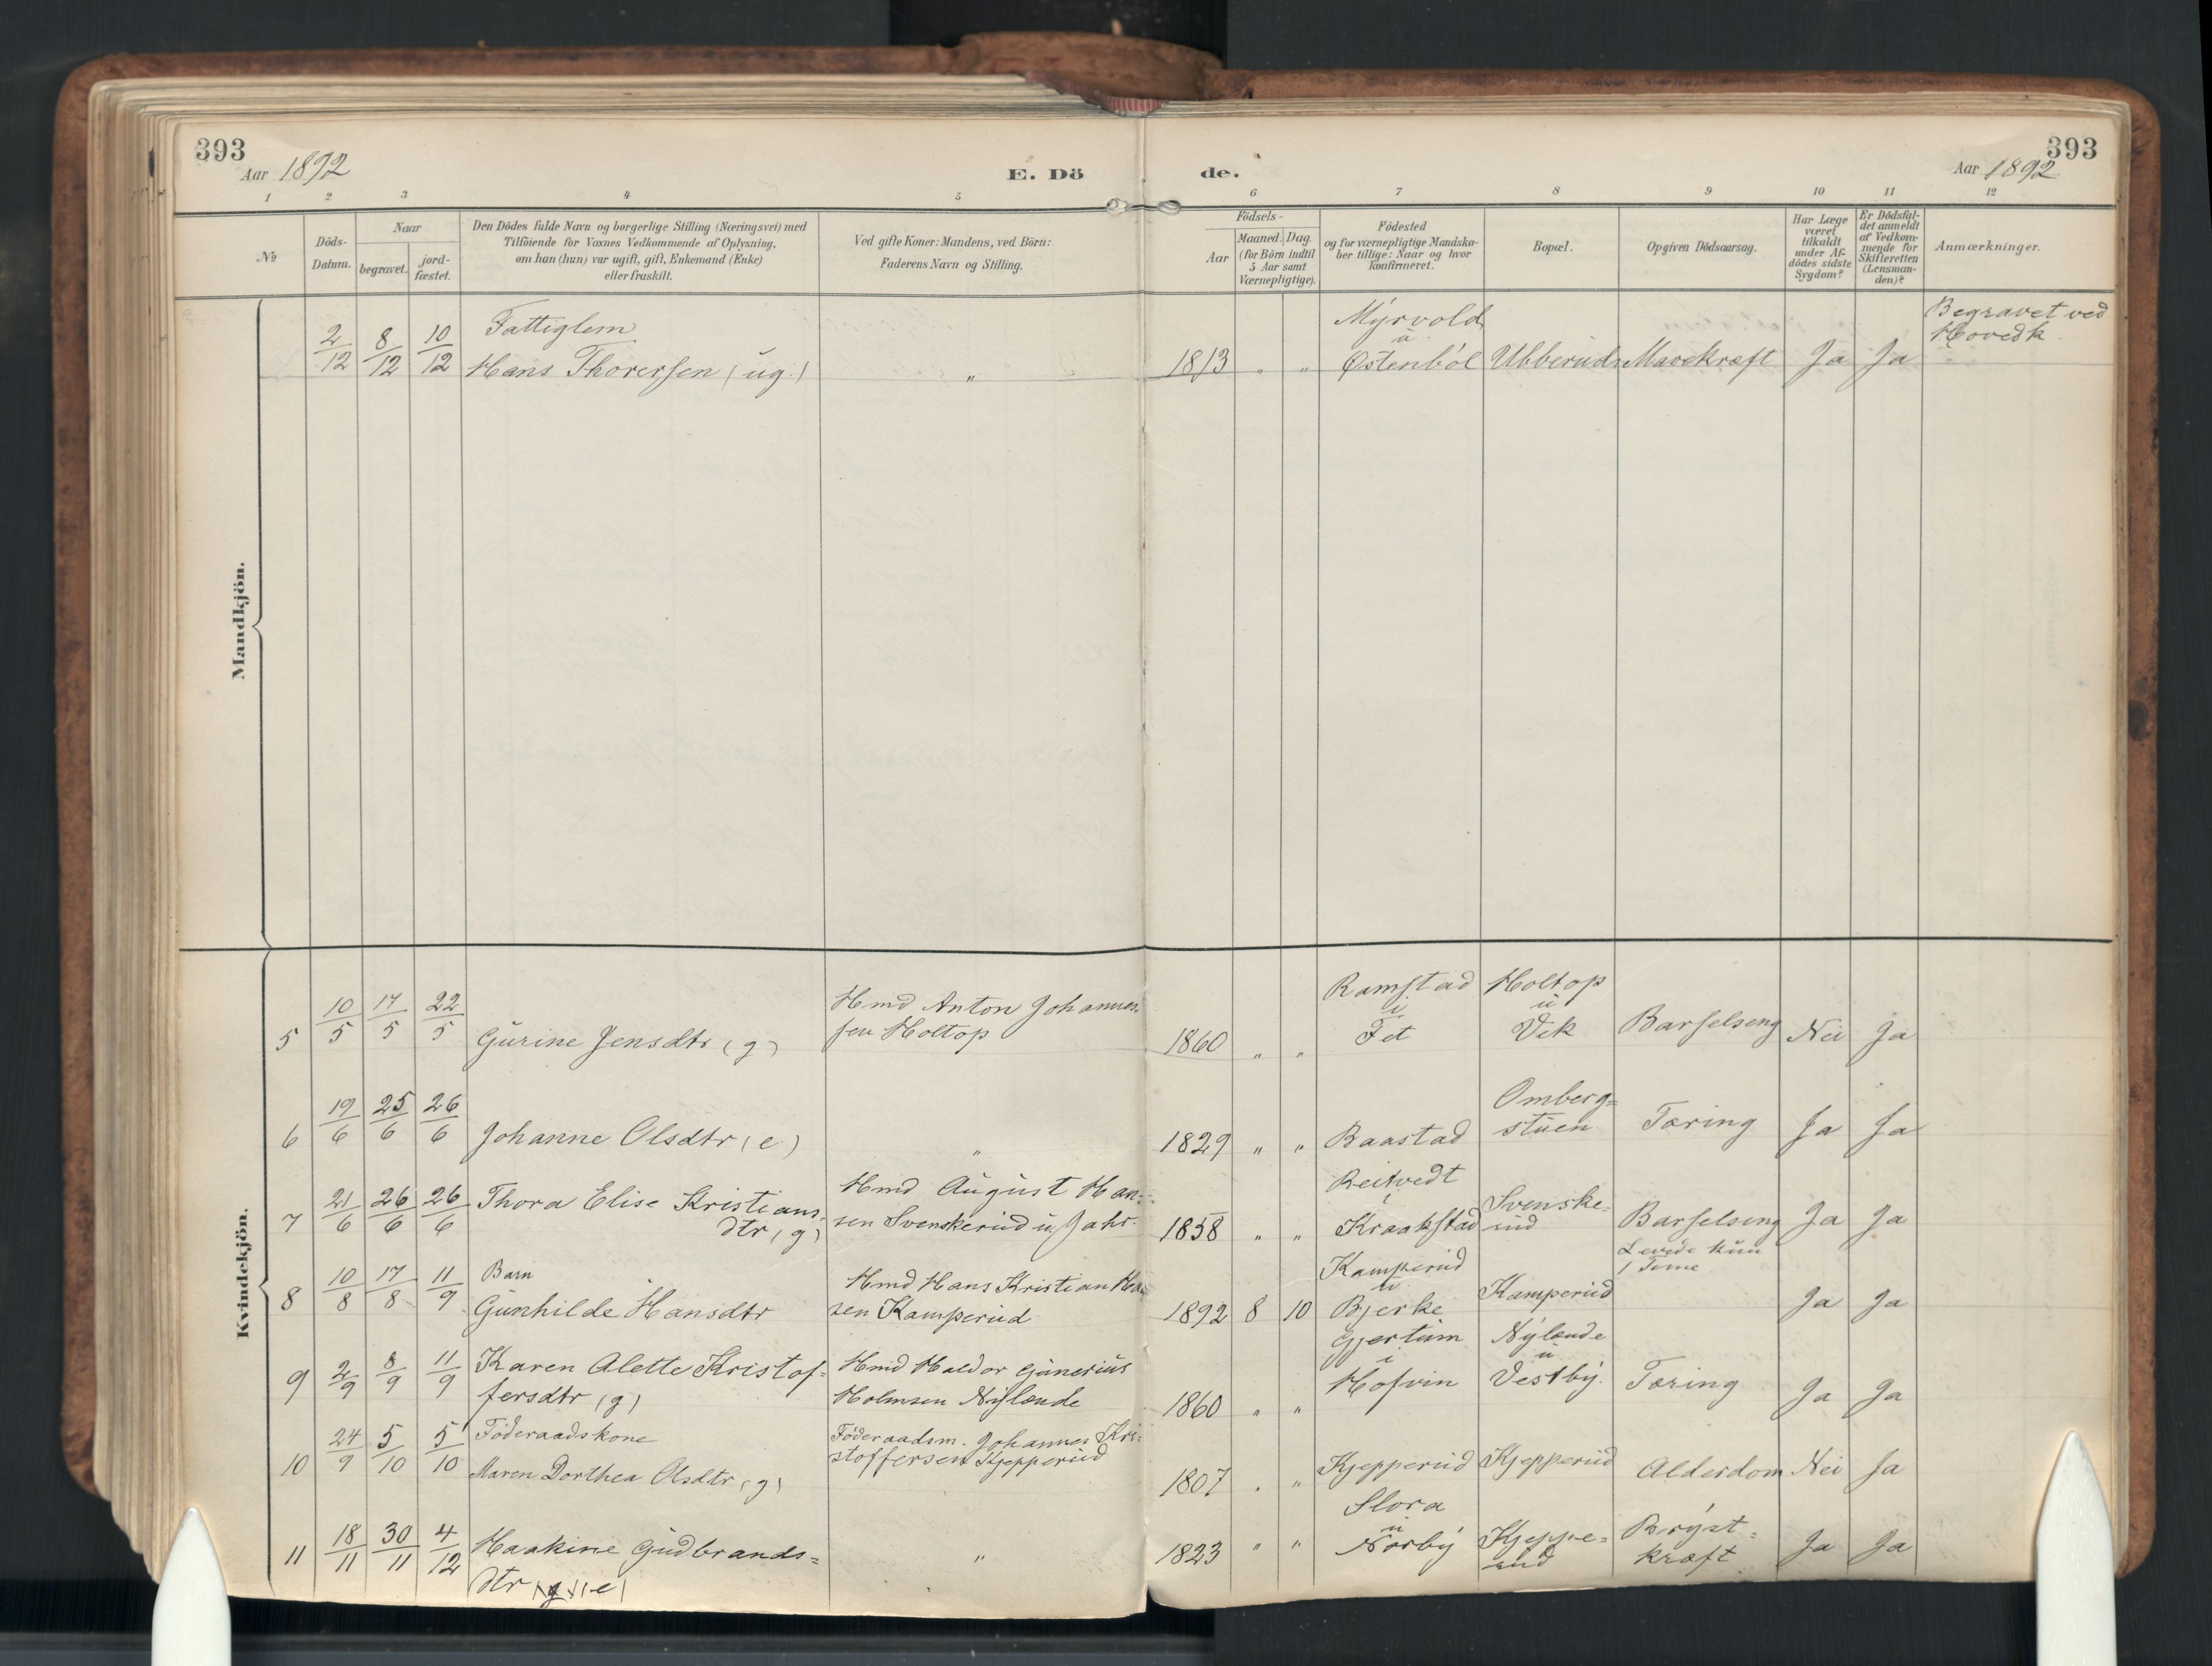 393
Aar 1892
E. Dö
de.
Aar 1892
393
1 2 3 4 5 6 7 8 9 10 11 12
No
Döds-
Datum.
Naar
begravet.
jord-
fæstet.
Den Dödes fulde Navn og borgerlige Stilling (Næringsvei) med
Tilföiende for Voxnes Vedkommende af Oplysning,
om han (hun) var ugift, gift, Enkemand (Enke)
eller fraskilt.
Ved gifte Koner: Mandens, ved Börn:
Faderens Navn og Stilling.
Födsels-
Aar
Maaned. Dag.
(for Börn indtil
5 Aar samt
Værnepligtige).
Födested
og for værnepligtige Mandska-
ber tillige: Naar og hvor
konfirmeret.
Bopæl.
Opgiven Dödsaarsag.
Har Læge
været
tilkaldt
under Af-
dödes sidste
Sygdom?
Er Dödsfal-
det anmeldt
af Vedkom-
mende for
Skifteretten
(Lensman-
den)?
Anmærkninger.
Mandkjön.
2/12 8/12 10/12
Fattiglem
Hans Thorersen (ug.)
"
1813 " "
Myrvold
u
Østenböl
Ubberud
Mavekræft
Ja
Ja
Begravet ved
Hovedk.
Kvindekjön.
5
10/5 17/5 22/5
Gurine Jensdtr (g)
Hmd Anton Johannes-
sen Holtop
1860 " "
Ramstad
i
Fet
Holtop
u
Vik
Barselseng
Nei
Ja
6
19/6 25/6 26/6
Johanne Olsdtr (e)
"
1829 " "
Baastad
Omberg=
stuen
Tæring
Ja
Ja
7
21/6 26/6 26/6
Thora Elise Kristians-
dtr (g)
Hmd August Han-
sen Svenskerud u, Jahr.
1858 " "
Reitvedt
i
Kraakstad
Svenske-
rud
Barselseng
Ja
Ja
8
10/8 17/8 11/9
Barn
Gunhilde Hansdtr
Hmd Hans Kristian Han-
sen Kamperud
1892 8 10
Kamperud
u
Bjerke
Kamperud
Levede kun
1 Time
Ja
Ja
9
2/9 8/9 11/9
Karen Alette Kristof=
fersdtr (g)
Hmd Haldor Gunerius
Holmsen Nylænde
1860 " "
Gjertum
i
Hofvin
Nylænde
u
Vestby.
Tæring
Ja
Ja
10
24/9 5/10 5/10
Föderaadskone
Maren Dorthea Olsdtr (g)
Föderaadsm. Johannes Kri-
stoffersen Kjepperud
1807 " "
Kjepperud
Kjepperud
Alderdom
Nei
Ja
11
18/11 30/11 4/12
Haakine Gudbrands=
dtr (g) (e)
"
1823 " "
Slora
u
Norby
Kjeppe=
rud
Bryst=
kræft
Ja
Ja